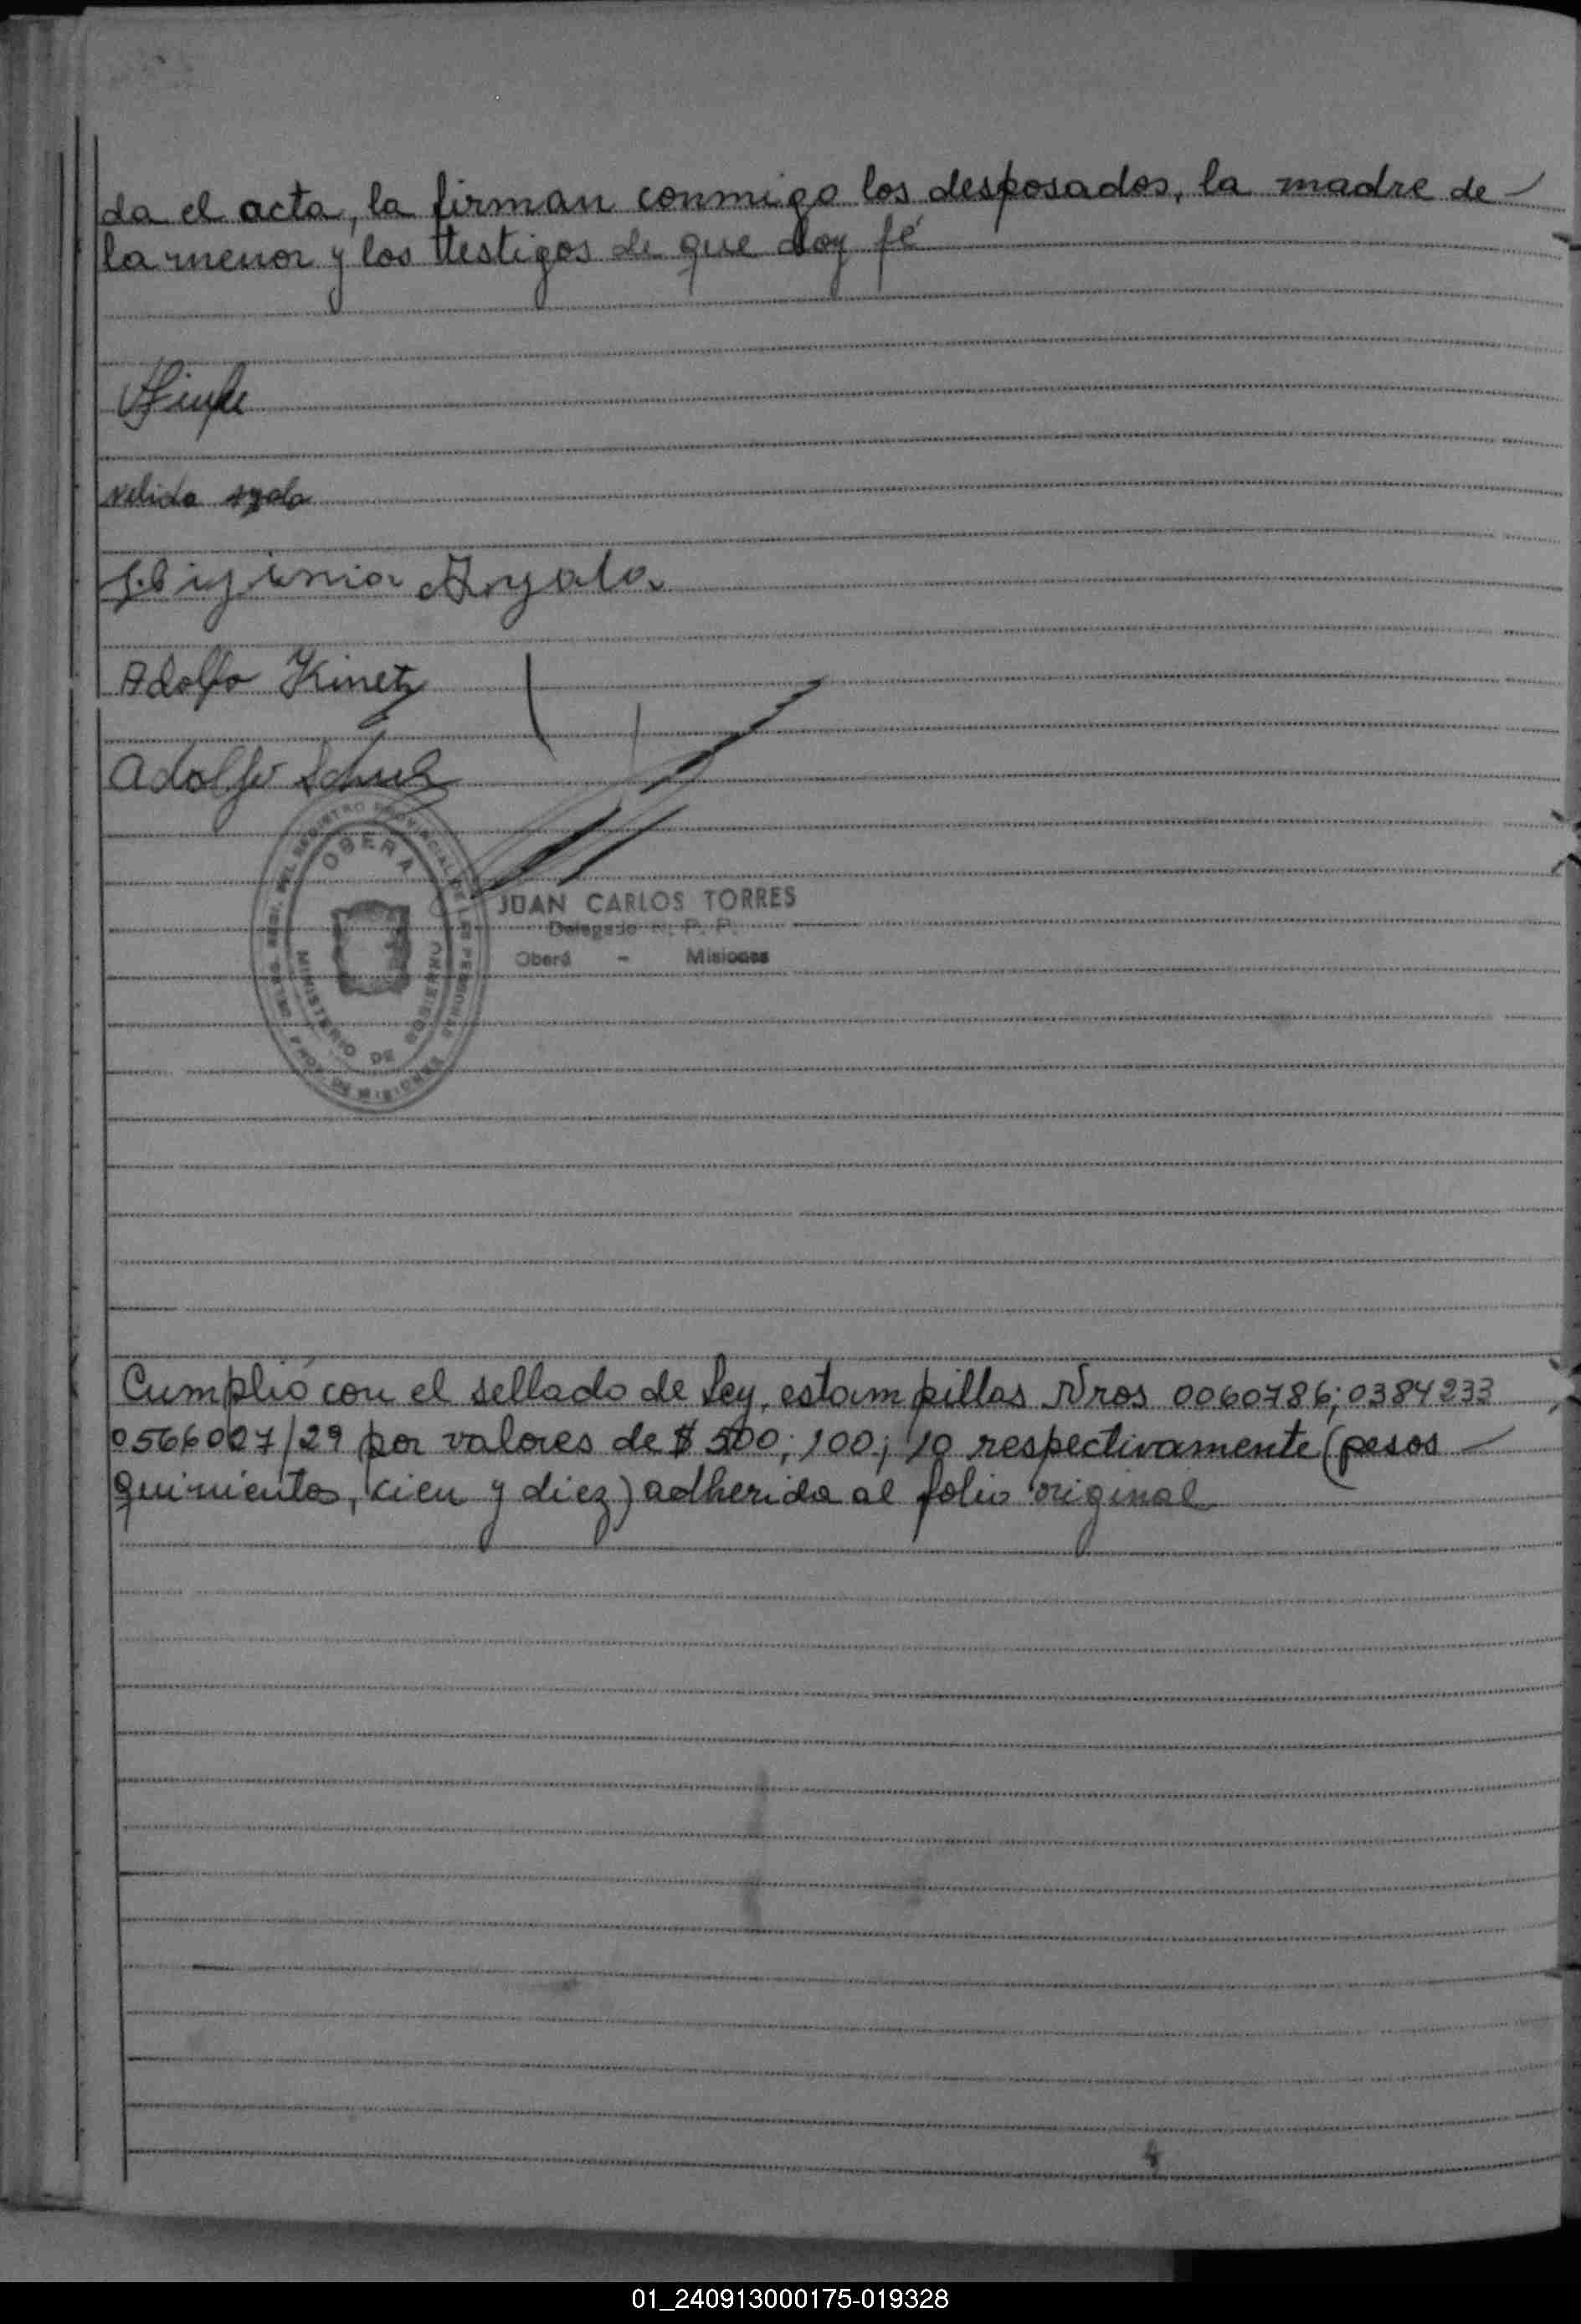 da el acta, la firman conmigo los desposados, la madre de
la menor y los testigos de que doy fé
Nelida ayala
Higinia Ayala
Adolfo Kinetz
Adolfo Schulz
OBERA
MINISTERIO DE
JUAN CARLOS TORRES
Delegado R. P. P.
Oberá - Misiones
Cumplió con el sellado de Ley, estampillas Nros 0060786; 0384233
0566027/29 por valores de $ 500; 100; 10 respectivamente (pesos
quinientos, cien y diez) adherida al folio original
01_240913000175-019328